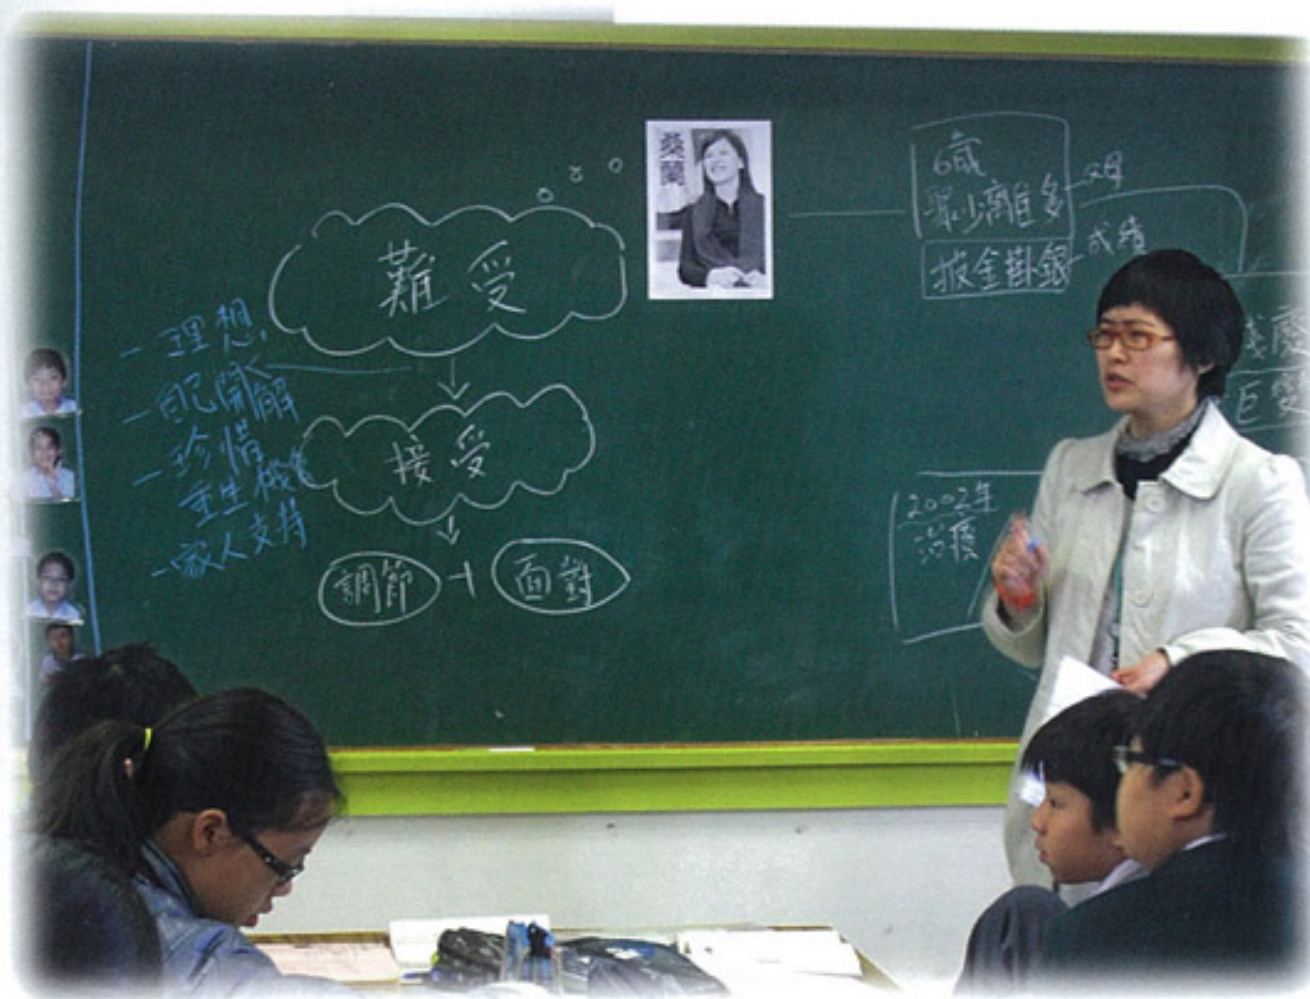 桑蘭
難受
接受
調節 + 面對
- 理想,
- 自己開解
- 珍惜
重生機會
- 家人支持
6歲
聚少離多
父母
披金掛銀
成績
巨變
2002年
治療